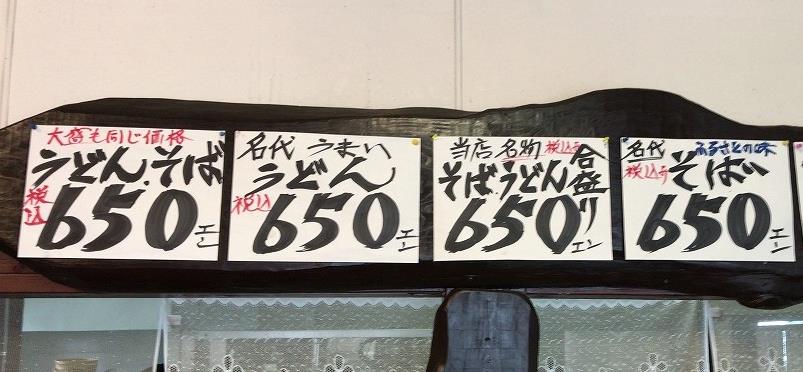 大盛も同じ価格
うどん.そば
税込
650エン
名代 うまい
うどん
税込
650エン
当店 名物 税込み
そば.うどん合盛り
650エン
名代 ふるさとの味
税込み そば
650エン